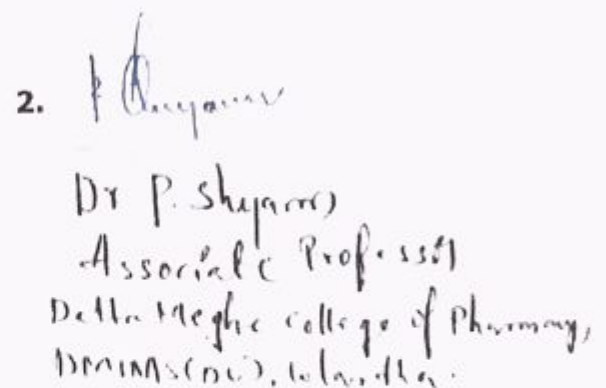 2.
Dr P. Shyam
Associate Professor
Datta Meghe college of Pharmacy,
DMIMS(DU), Wardha.